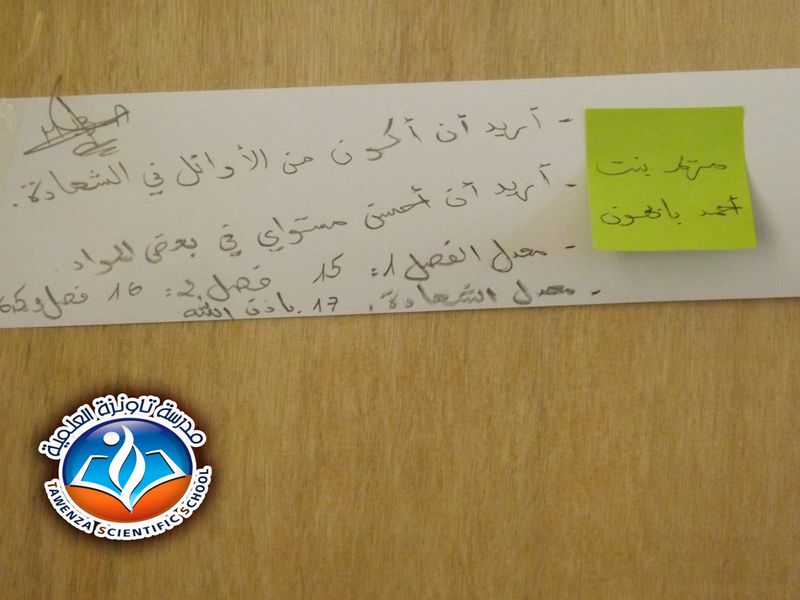 - أريد أن أكون من الأوائل في الشهادة.
- أريد أن أحسن مستواي في بعض المواد
- معدل الفصل 1: 15 فصل 2: 16 فصل 3
- معدل الشهادة: 17 بإذن الله
بنت
أحمد باحمون
مدرسة تاونزة العلمية
TAWENZA SCIENTIFIC SCHOOL